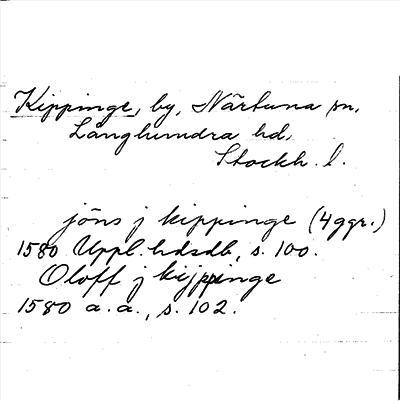 Kippinge, by, Närtuna sn,
Långhundra hd,
Stockh. l.
jöns j kippinge (4 ggr.)
1580 Uppl. hdsdb, s. 100.
Oloff j kijpinge
1580 a. a., s. 102.